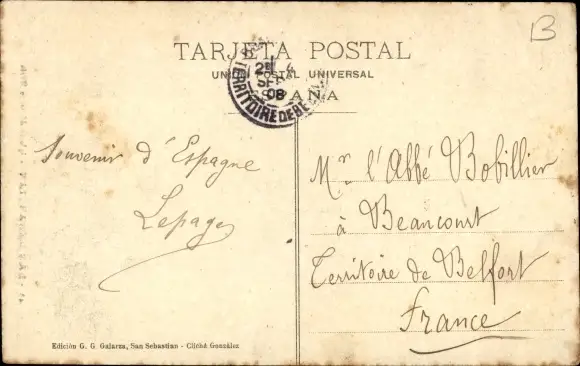 B
TARJETA POSTAL
UNION POSTAL UNIVERSAL
ESPAÑA
TERRITOIRE DE BE
08
Souvenir d'Espagne
Lepage
Mr. l'Abbé Bobillier
à Beaucourt
Territoire de Belfort
France
Edición G. G. Galarza, San Sebastian - Cliché González